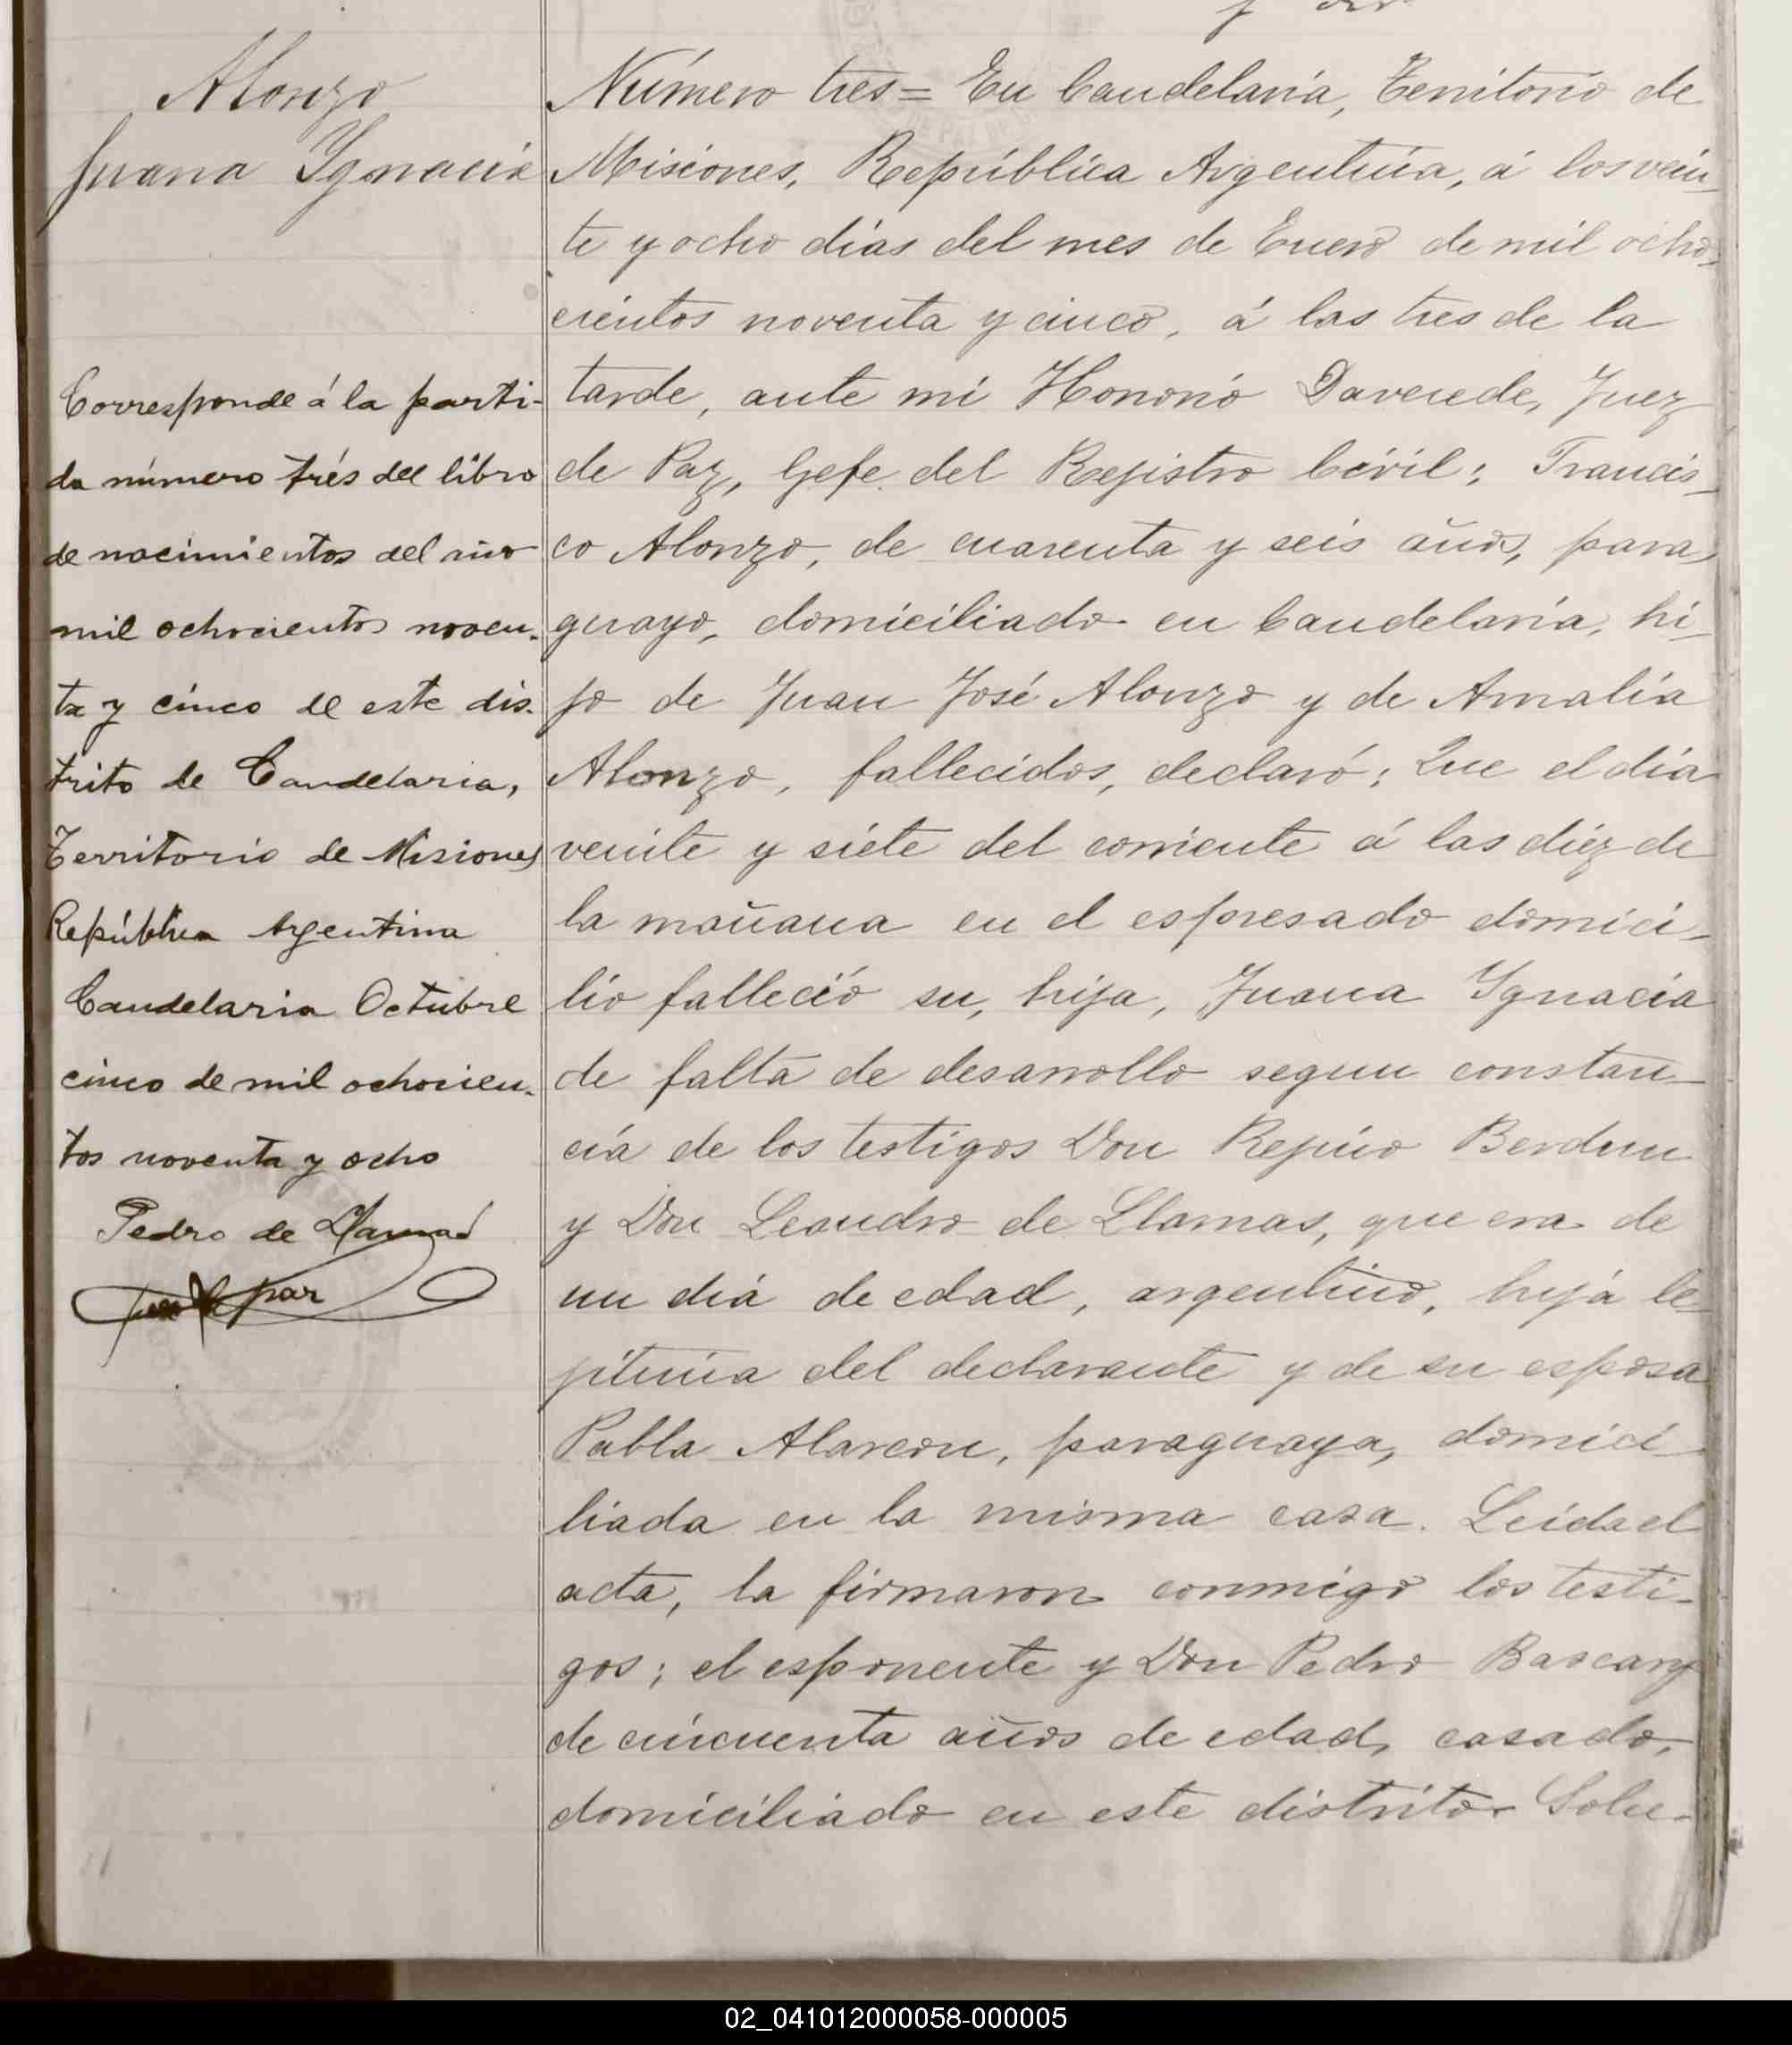 Alonzo
Juana Ygnacia
Corresponde á la parti-
da número trés del libro
de nacimientos del año
mil ochocientos noven-
ta y cinco de este dis-
trito de Candelaria,
Territorio de Misiones
República Argentina
Candelaria Octubre
cinco de mil ochocien-
tos noventa y ocho
Pedro de Llamas
Juez de paz
Número tres= En Candelaria, Territorio de
Misiones, República Argentina, á los vein-
te y ocho días del mes de Enero de mil ocho-
cientos noventa y cinco, á las tres de la
tarde, ante mi Honorio Daverede, Juez
de Paz, Gefe del Rejistro Civil; Francis-
co Alonzo, de cuarenta y seis años, para-
guayo, domiciliado en Candelaria, hi-
jo de Juan José Alonzo y de Amalia
Alonzo, fallecidos, declaró; Que el día
veinte y siete del corriente á las diez de
la mañana en el espresado domici-
lio falleció su, hija, Juana Ygnacia
de falta de desarrollo segun constan-
cia de los testigos Don Rejino Berdun
y Don Leandro de Llamas, que era de
un día de edad, argentino, hija le-
jitima del declarante y de su esposa
Pabla Alarcon, paraguaya, domici-
liada en la misma casa. Leida el
acta, la firmaron conmigo los testi-
gos; el esponente y Don Pedro Bascary
de cincuenta años de edad, casado,
domiciliado en este distrito
02_041012000058-000005